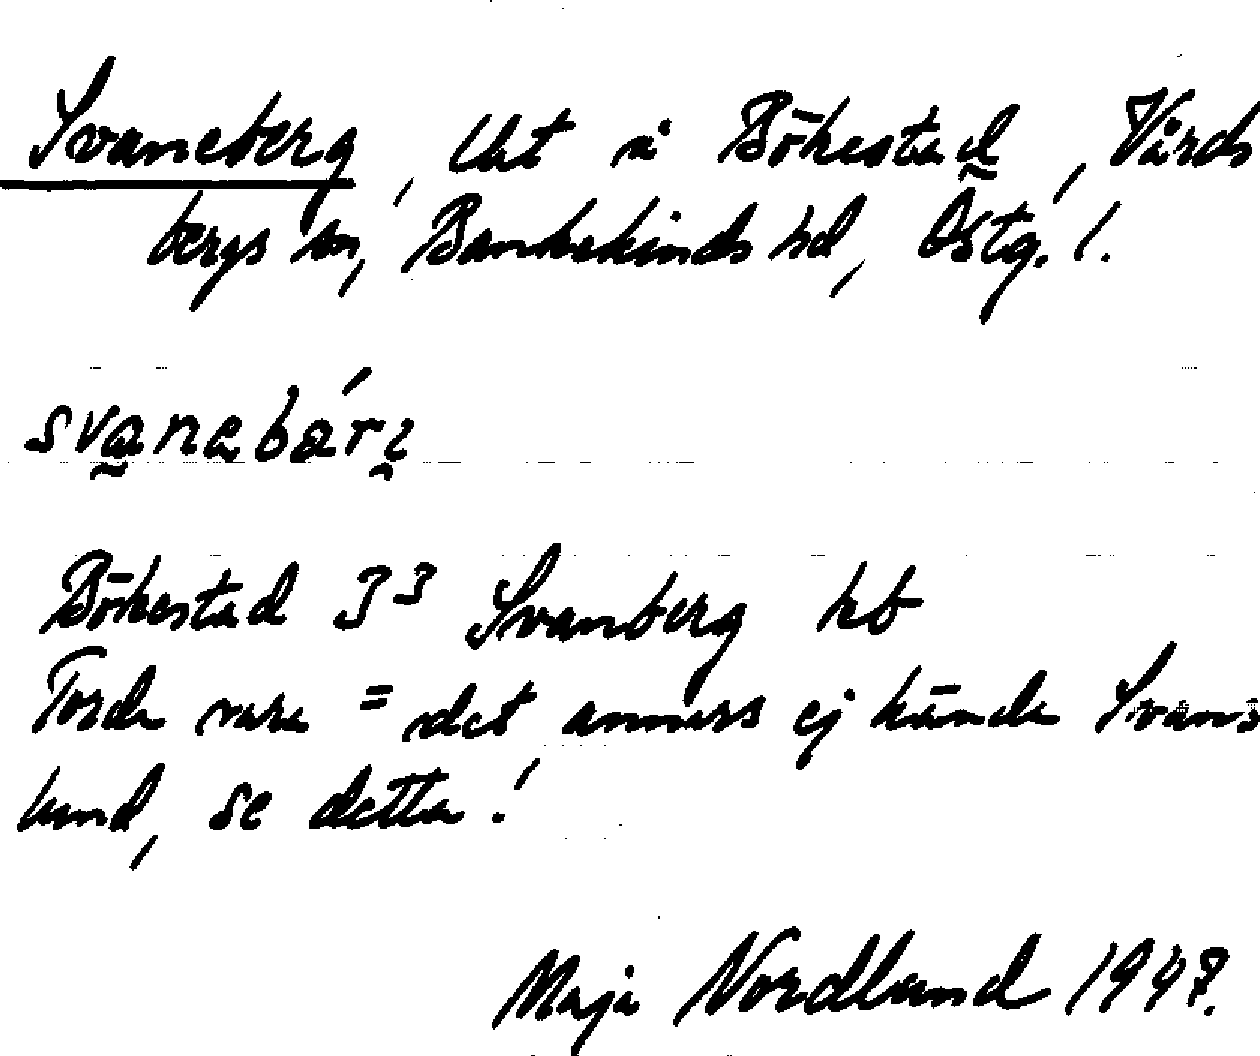 Svaneberg, lht å Bökestad, Vårds
bergs sn, Bankekinds hd, Östg. l.
svanebärj
Bökestad 3³ Svanberg kb
Torde vara = det annars ej kända Svans
lund, se detta!
Maja Nordlund 1947.